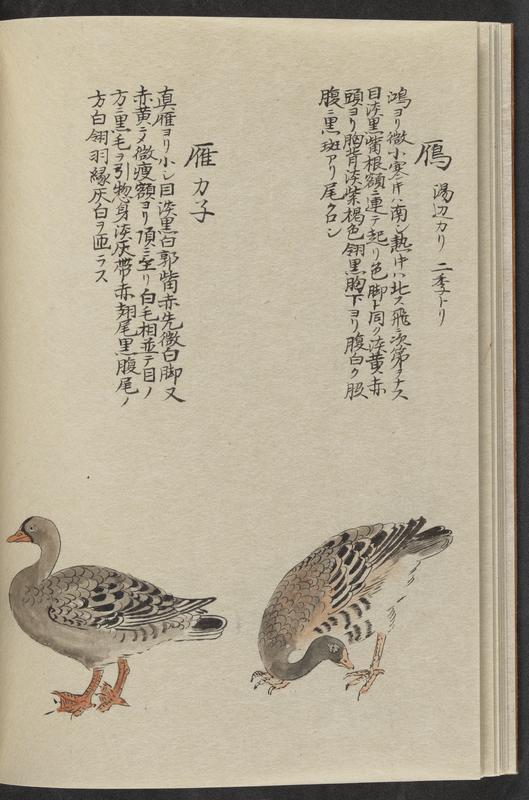 鴈 湯辺カリ 二季トリ
鴻ヨリ微小寒キハ南シ熱キハ北ス飛ニ次第ヲナス
目淡黒觜根額ニ連テ起リ色脚ト同ク淡黄赤
頭ヨリ胸背淡紫褐色翎黒胸下ヨリ腹白ク股
腹ニ黒斑アリ尾クロシ
雁 カ子
真雁ヨリ小シ目淡黒白郭觜赤先微白脚又
赤黄ラ微痩額ヨリ頂ニ至リ白毛相並テ目ノ
方ニ黒毛ヲ引惣身淡灰帯赤翅尾黒腹尾ノ
方白翎羽縁灰白ヲ匝ラス